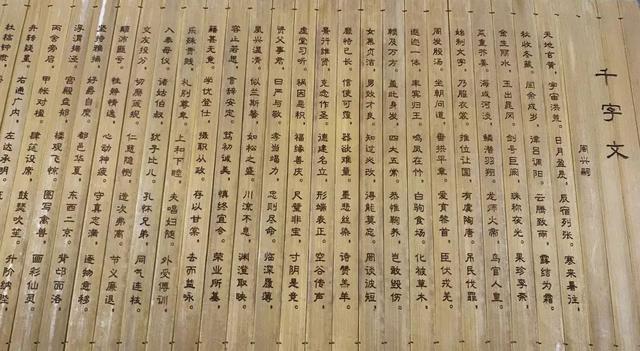 千字文
周兴嗣
天地玄黄，宇宙洪荒。日月盈昃，辰宿列张。寒来暑往，
秋收冬藏。闰余成岁，律吕调阳。云腾致雨，露结为霜。
金生丽水，玉出昆冈。剑号巨阙，珠称夜光。果珍李柰，
菜重芥姜。海咸河淡，鳞潜羽翔。龙师火帝，鸟官人皇。
始制文字，乃服衣裳。推位让国，有虞陶唐。吊民伐罪，
周发殷汤。坐朝问道，垂拱平章。爱育黎首，臣伏戎羌。
遐迩一体，率宾归王。鸣凤在竹，白驹食场。化被草木，
赖及万方。盖此身发，四大五常。恭惟鞠养，岂敢毁伤。
女慕贞洁，男效才良。知过必改，得能莫忘。罔谈彼短，
靡恃己长。信使可覆，器欲难量。墨悲丝染，诗赞羔羊。
景行维贤，克念作圣。德建名立，形端表正。空谷传声，
虚堂习听。祸因恶积，福缘善庆。尺璧非宝，寸阴是竞。
资父事君，曰严与敬。孝当竭力，忠则尽命。临深履薄，
夙兴温清。似兰斯馨，如松之盛。川流不息，渊澄取映。
容止若思，言辞安定。笃初诚美，慎终宜令。荣业所基，
籍甚无竟。学优登仕，摄职从政。存以甘棠，去而益咏。
乐殊贵贱，礼别尊卑。上和下睦，夫唱妇随。外受傅训，
入奉母仪。诸姑伯叔，犹子比儿。孔怀兄弟，同气连枝。
交友投分，切磨箴规。仁慈隐恻，造次弗离。节义廉退，
颠沛匪亏。性静情逸，心动神疲。守真志满，逐物意移。
坚持雅操，好爵自縻。都邑华夏，东西二京。背邙面洛，
浮渭据泾。宫殿盘郁，楼观飞惊。图写禽兽，画彩仙灵。
丙舍旁启，甲帐对楹。肆筵设席，鼓瑟吹笙。升阶纳陛，
弁转疑星。右通广内，左达承明。
杜稿钟隶，